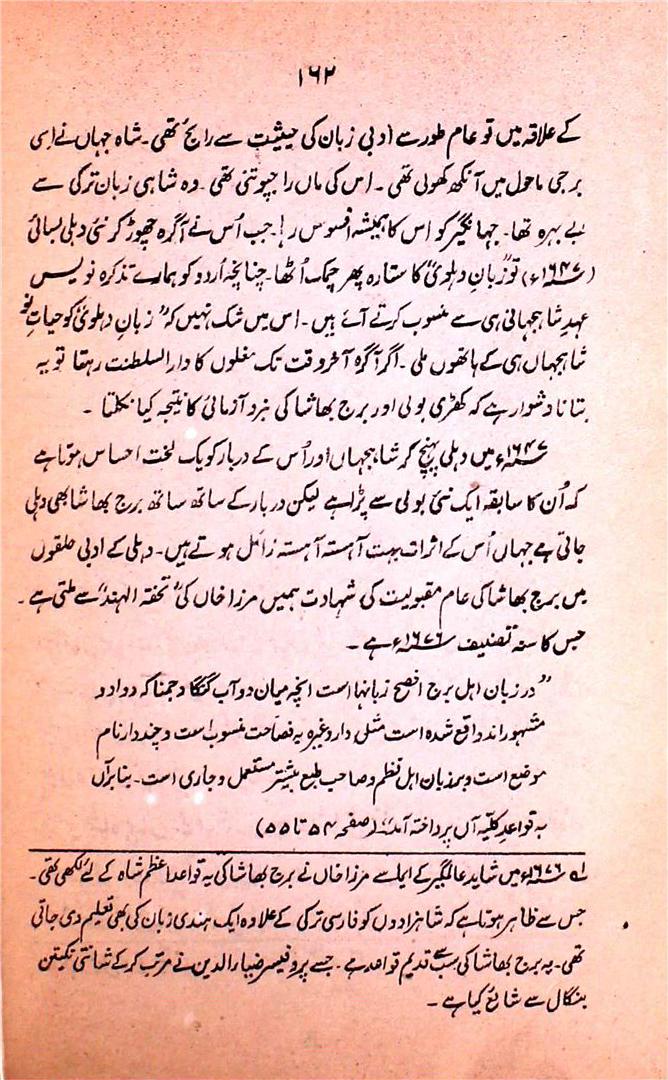 ۱۶۲
کے علاقہ میں تو عام طور سے ادبی زبان کی حیثیت سے رائج تھی۔ شاہ جہاں نے اسی
برجی ماحول میں آنکھ کھولی تھی۔ اس کی ماں راجپوتنی تھی۔ وہ شاہی زبان ترکی سے
بے بہرہ تھا۔ جہانگیر کو اس کا ہمیشہ افسوس رہا۔ جب اُس نے آگرہ چھوڑ کر نئی دہلی بسائی
(۱۶۴۷ء) تو "زبانِ دہلوی" کا ستارہ پھر چمک اُٹھا۔ چنانچہ اُردو کو ہمارے تذکرہ نویس
عہدِ شاہجہانی ہی سے منسوب کرتے آئے ہیں۔ اس میں شک نہیں کہ "زبانِ دہلوی" کو حیاتِ نو
شاہجہاں ہی کے ہاتھوں ملی۔ اگر آگرہ آخر وقت تک مغلوں کا دارالسلطنت رہتا تو یہ
بتانا دشوار ہے کہ کھڑی بولی اور برج بھاشا کی نبرد آزمائی کا نتیجہ کیا نکلتا۔
۱۶۴۷ء میں دہلی پہنچ کر شاہجہاں اور اُس کے دربار کو یک لخت احساس ہوتا ہے
کہ اُن کا سابقہ ایک نئی بولی سے پڑا ہے لیکن دربار کے ساتھ ساتھ برج بھاشا بھی دہلی
جاتی ہے جہاں اُس کے اثرات بہت آہستہ آہستہ زائل ہوتے ہیں۔ دہلی کے ادبی حلقوں
میں برج بھاشا کی عام مقبولیت کی شہادت ہمیں مرزا خاں کی "تحفۃ الہند" سے ملتی ہے۔
جس کا سنہ تصنیف ۱۶۷۶ء ہے۔
"در زبان اہل برج افصح زبانہا است انچہ میان دوآب گنگا و جمنا کہ دو اد و
مشہور اند واقع شدہ است مثلی دار وغیرہ بہ فصاحت منسوب است و چندوار نام
موضع است و برزبان اہل نظم و صاحب طبع بیشتر مستعمل و جاری است۔ بنا برآں
بہ قواعدِ کلیّہ آں پرداختہ آمد" (صفحہ ۵۴ تا ۵۵)
لہ ۱۶۷۶ء میں شاید عالمگیر کے ایما سے مرزا خاں نے برج بھاشا کی یہ قواعد اعظم شاہ کے لئے لکھی تھی۔
جس سے ظاہر ہوتا ہے کہ شاہزادوں کو فارسی ترکی کے علاوہ ایک ہندی زبان کی بھی تعلیم دی جاتی
تھی۔ یہ برج بھاشا کی سب سے قدیم قواعد ہے۔ جسے پروفیسر ضیاء الدین نے مرتب کر کے شانتی نکیتن
بنگال سے شائع کیا ہے۔